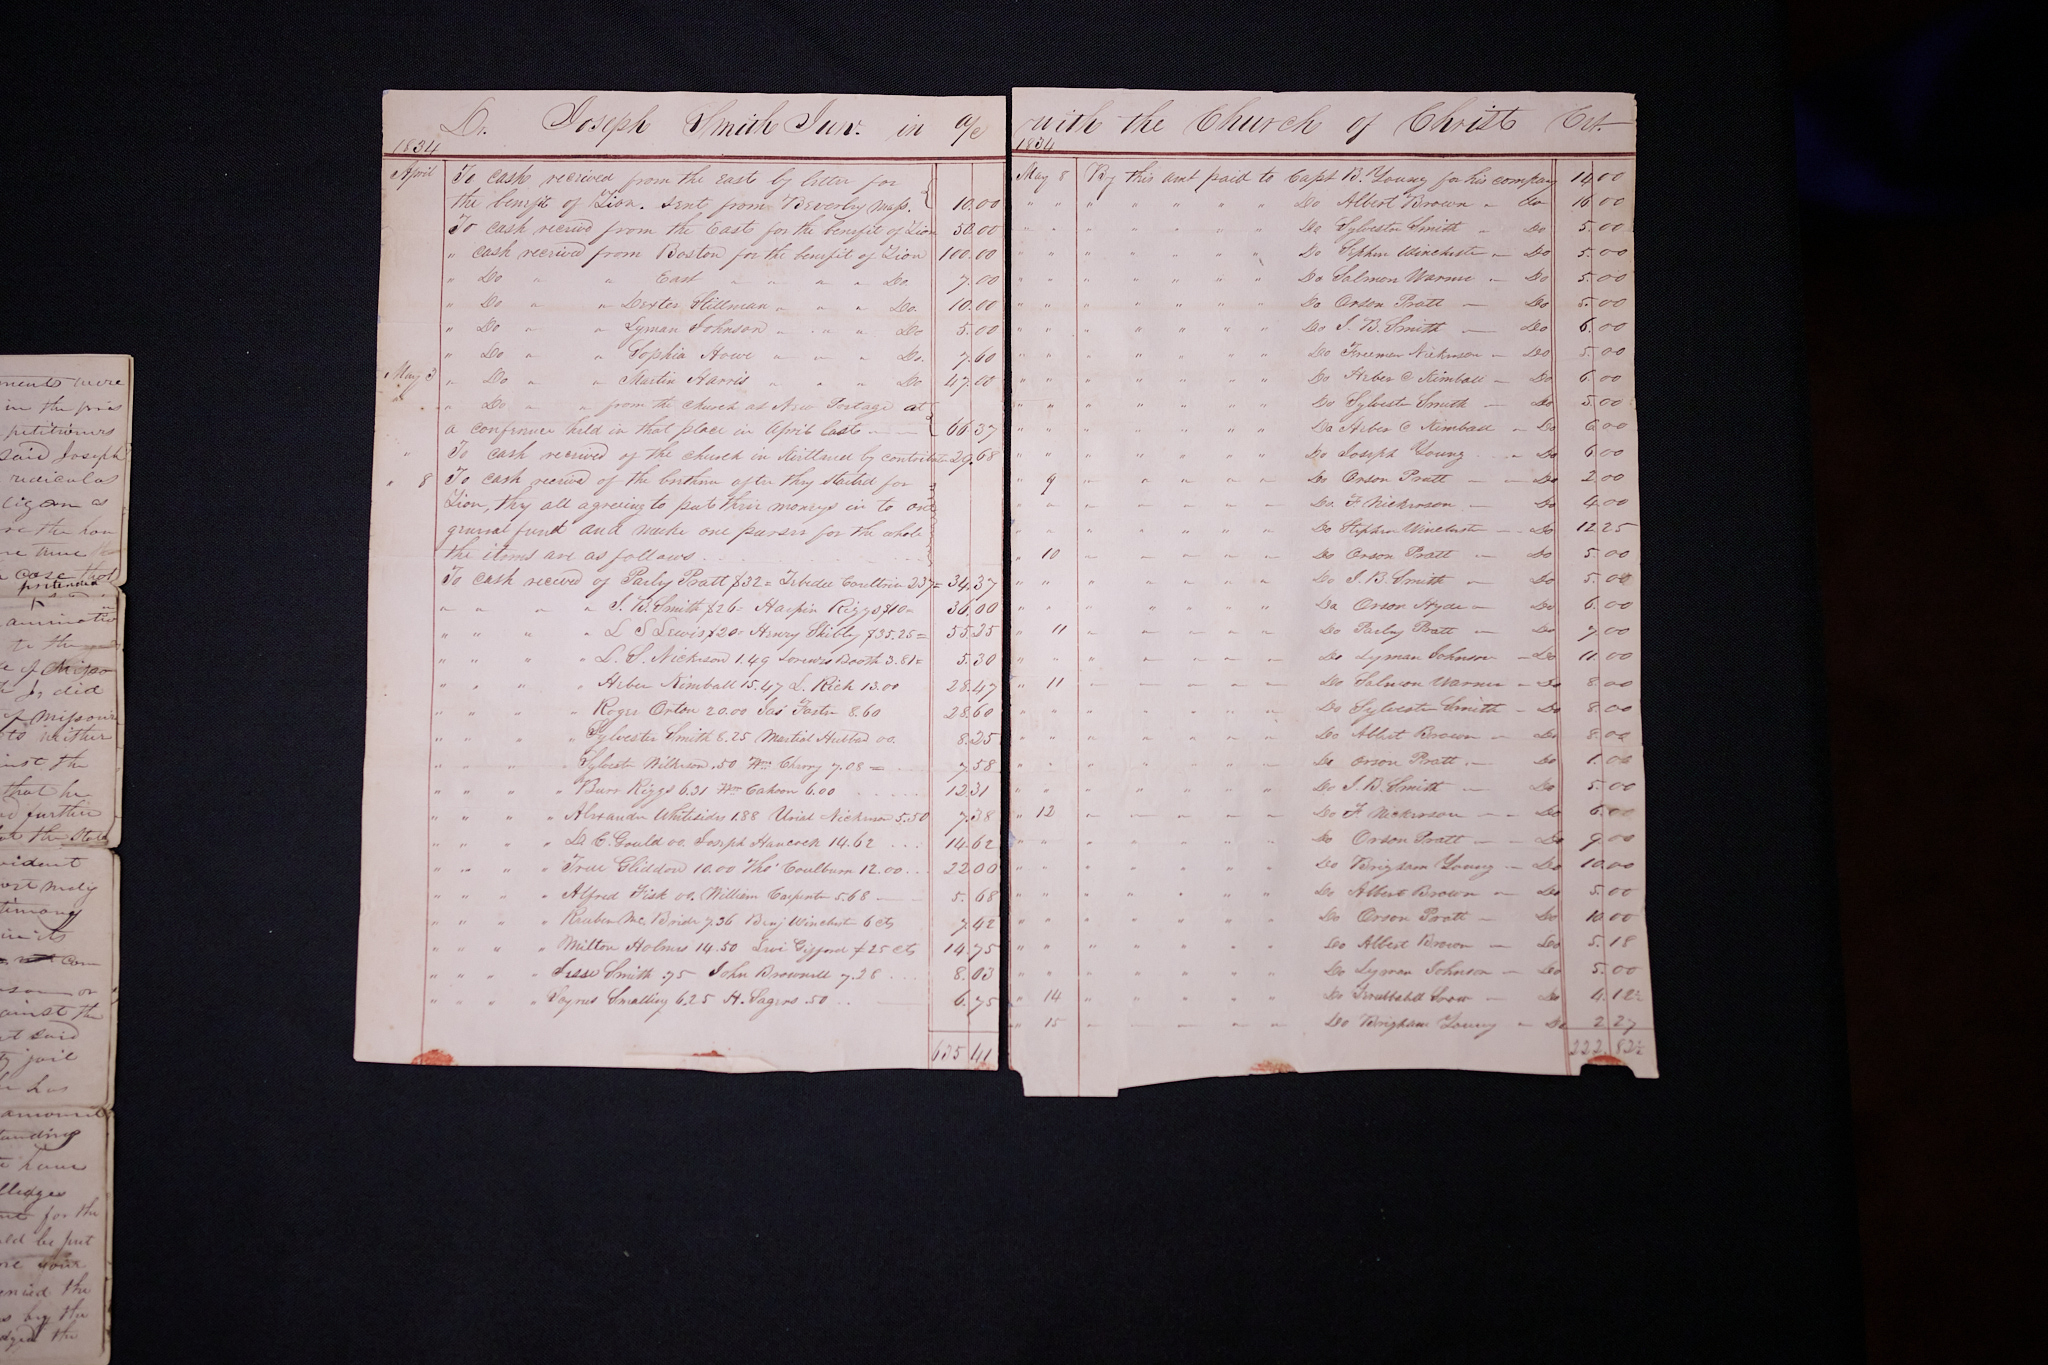 ments were
in the pris
petitioners
said Joseph
rediculas
ligion a
re the hon
re were
case that
pretended
aminatio
to the
of Missou
did
of Missouri
to neither
inst the
that he
d further
at the State
vident
timony
in its
not can
son or
ainst the
at said
ty jail
he has
amount
tanding
have
lledges
for the
uld be put
re your
enied the
s by the
the
Dr. Joseph Smith Junr. in a/c
1834
April To cash received from the East by letter for
the benefit of Zion. Sent from Beverly Mass. 10.00
To cash received from the East for the benefit of Zion 50.00
" cash received from Boston for the benefit of Zion 100.00
" Do " " East " " " " Do. 7.00
" Do " " Dexter Stillman " " " Do. 10.00
" Do " " Lyman Johnson " " " Do 5.00
" Do " " Sophia Howe " " " Do. 7.60
May 3 " Do " " Martin Harris " " " Do 47.00
" " Do " " from the church at New Portage at
a conference held in that place in April last 66.37
" To cash received of the church in Kirtland by contribution 29.68
" 8 To cash received of the brethren after they started for
Zion, they all agreeing to put their moneys in to one
general fund and make one purser for the whole
the items are as follows
To cash received of Parley Pratt $32= Zebedee Coultrin 2.37= 34.37
" " " " J. B. Smith $26= Harpin Riggs $10= 36.00
" " " " L S Lewis $20= Henry Shibly $35.25= 55.25
" " " " L. S. Nickerson 1.49 Lorenzo Booth 3.81= 5.30
" " " " Heber Kimball 15.47 L. Rich 13.00 28.47
" " " " Roger Orton 20.00 Jas Foster 8.60 28.60
" " " " Sylvester Smith 8.25 Martial Hubbard 00. 8.25
" " " " Sylvester Wilkerson .50 Wm Cherry 7.08= 7.58
" " " " Burr Riggs 6.31 Wm Cahoon 6.00 12.31
" " " " Alexander Whitesides 1.88 Uriah Nickerson 5.50 7.38
" " " " D. C. Gould 00. Joseph Hancock 14.62 14.62
" " " " True Gliddon 10.00 Thos Coulburn 12.00 22.00
" " " " Alfred Fisk 00. William Carpenter 5.68 5.68
" " " " Reuben Mc Bride 7.36 Benj Winchester 6 cts 7.42
" " " " Milton Holmes 14.50 Levi Gifford $25 cts 14.75
" " " " Jesse Smith .75 John Brownell 7.28 8.03
" " " " Cyrus Smalling 6.25 H. Sagers .50 6.75
635 41
with the Church of Christ Crt.
1834
May 8 By this amt paid to Capt B. Young for his company 14.00
" " " " " " " Do Albert Brown " do 16 00
" " " " " " " Do Sylvester Smith " Do 5.00
" " " " " " " Do Stphen Winchester " Do 5.00
" " " " " " " Do Salmon Warner " Do 5.00
" " " " " " " Do Orson Pratt " Do 5.00
" " " " " " " Do J. B. Smith Do 6.00
" " " " " " " Do Freeman Nickerson " Do 5.00
" " " " " " " Do Heber C Kimball " Do 6.00
" " " " " " " Do Sylvester Smith Do 5.00
" " " " " " " Do Heber C Kimball " Do 6.00
" " " " " " " Do Joseph Young " Do 6.00
" 9 " " " " " Do Orson Pratt " Do 2.00
" " " " " " " Do. F. Nickerson Do 4.00
" " " " " " " Do Stephen Winchester Do 12.25
" 10 " " " " " Do Orson Pratt Do 5.00
" " " " " " " Do J. B. Smith Do 5.00
" " " " " " " Do Orson Hyde Do 6.00
" 11 " " " " " Do Parley Pratt Do 7.00
" " " " " " " Do Lyman Johnson Do 11.00
" 11 " " " " " Do Salmon Warner Do 8.00
" " " " " " " Do Sylvester Smith Do 8.00
" " " " " " " Do Albert Brown Do 8.00
" " " " " " " Do Orson Pratt Do 1.00
" " " " " " " Do J. B. Smith Do 5.00
" 12 " " " " " Do F. Nickerson Do 6.00
" " " " " " " Do Orson Pratt Do 9.00
" " " " " " " Do Brigham Young Do 10.00
" " " " " " " Do Albert Brown Do 5.00
" " " " " " " Do Orson Pratt Do 10.00
" " " " " " " Do Albert Brown Do 5.18
" " " " " " " Do Lyman Johnson Do 5.00
" 14 " " " " " Do Snow Do 4.12½
" 15 " " " " " Do Brigham Young " Do 2 27
222 82½